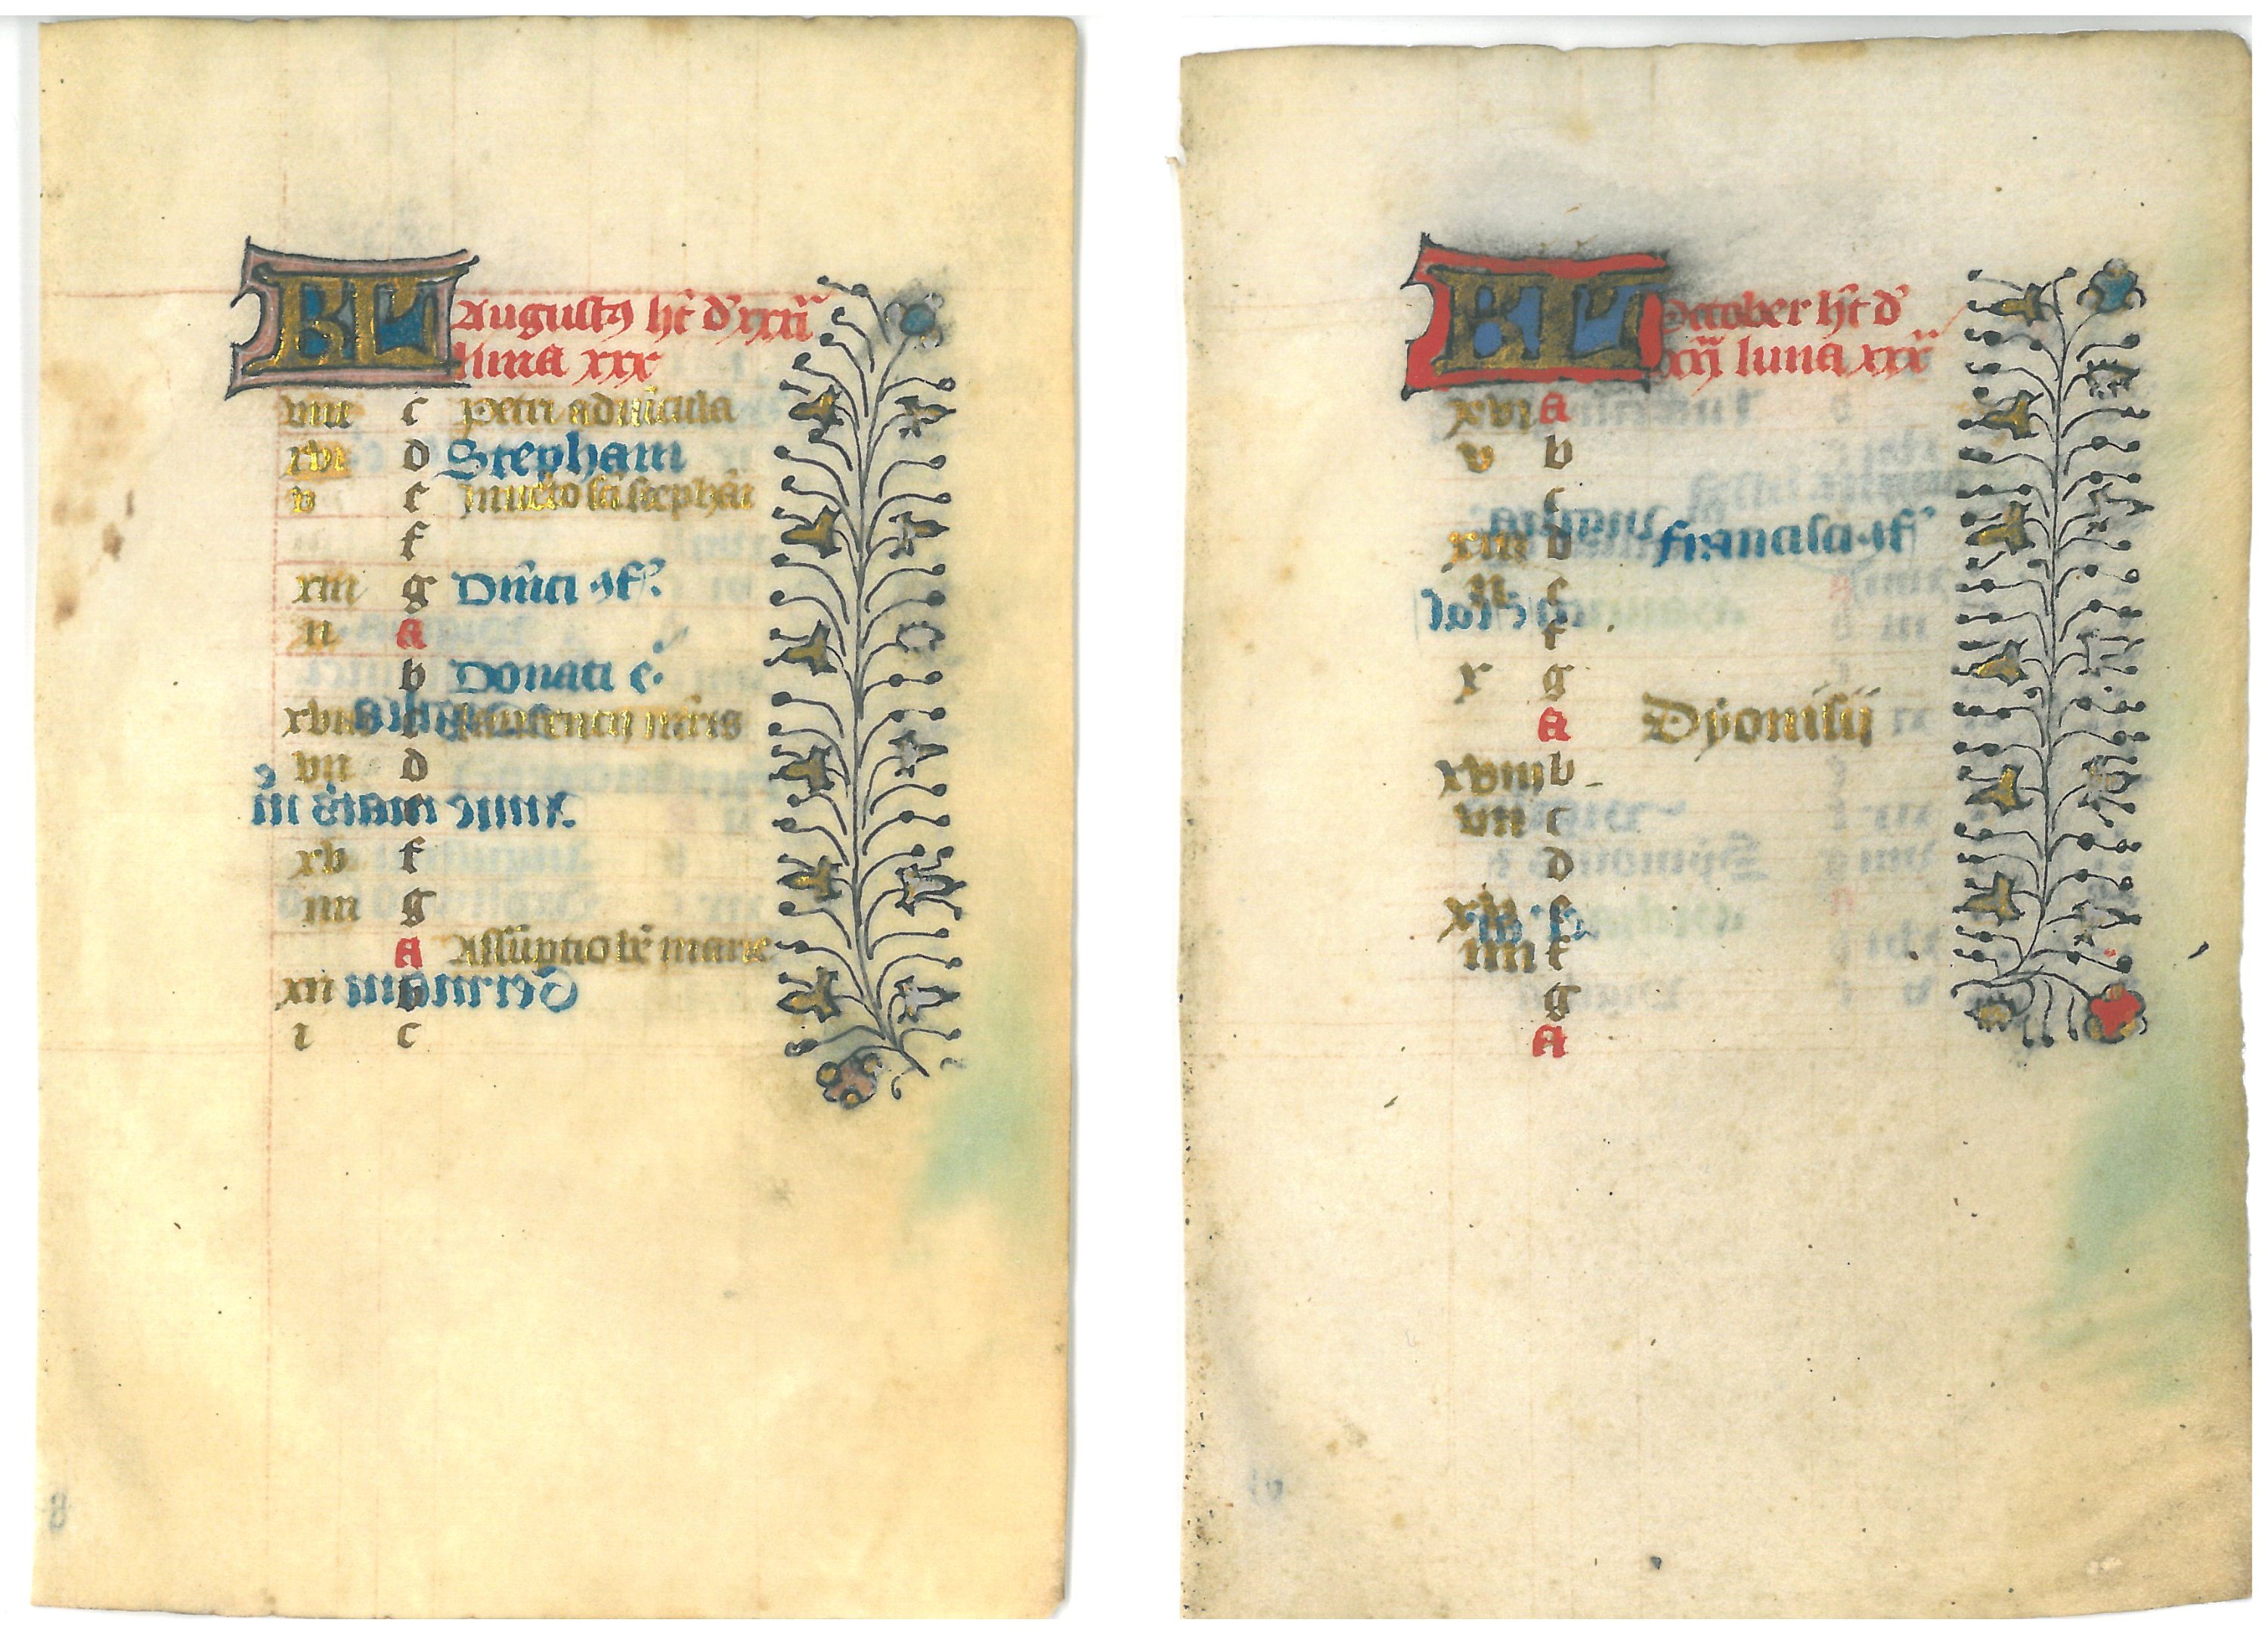 KL Augustꝰ hꝫ d' xxxi
luna xxx
viii c Petri advīcula
xvi d Stephani
v e Invēcio sci stephāi
f
xiii g Dn̄ici ꝯf.
ii A
b Donati e.
c laurencij mr̄is
vii d
e
xv f
iiii g
A Assūptio bē marie
xii b
i c
KL October hꝫ d'
xxxi luna xxx
xvi A
v b
c
xiii d francisci ꝯf
ii e
f
x g
A Dyonisij
xviii b
vii c
d
e
iiii f
g
A